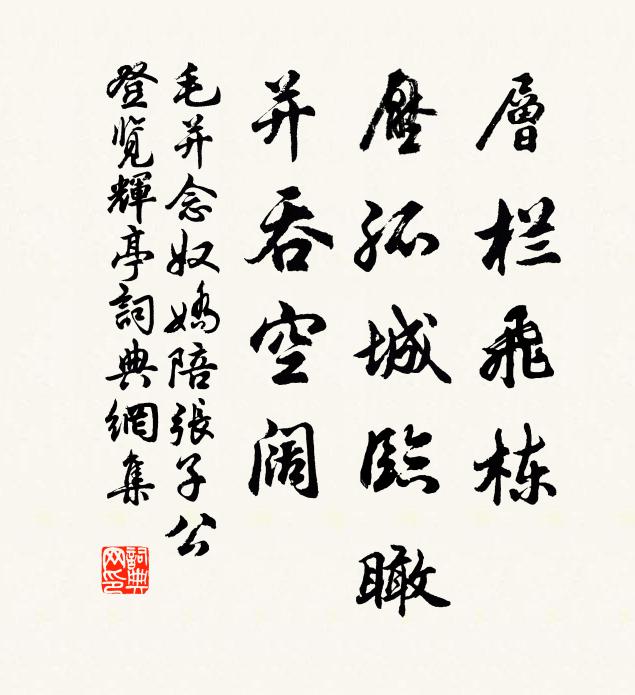 層栏飛栋
壓孤城臨瞰
并吞空阔
毛并念奴嬌陪張子公
登览輝亭詞典網集
詞典网印